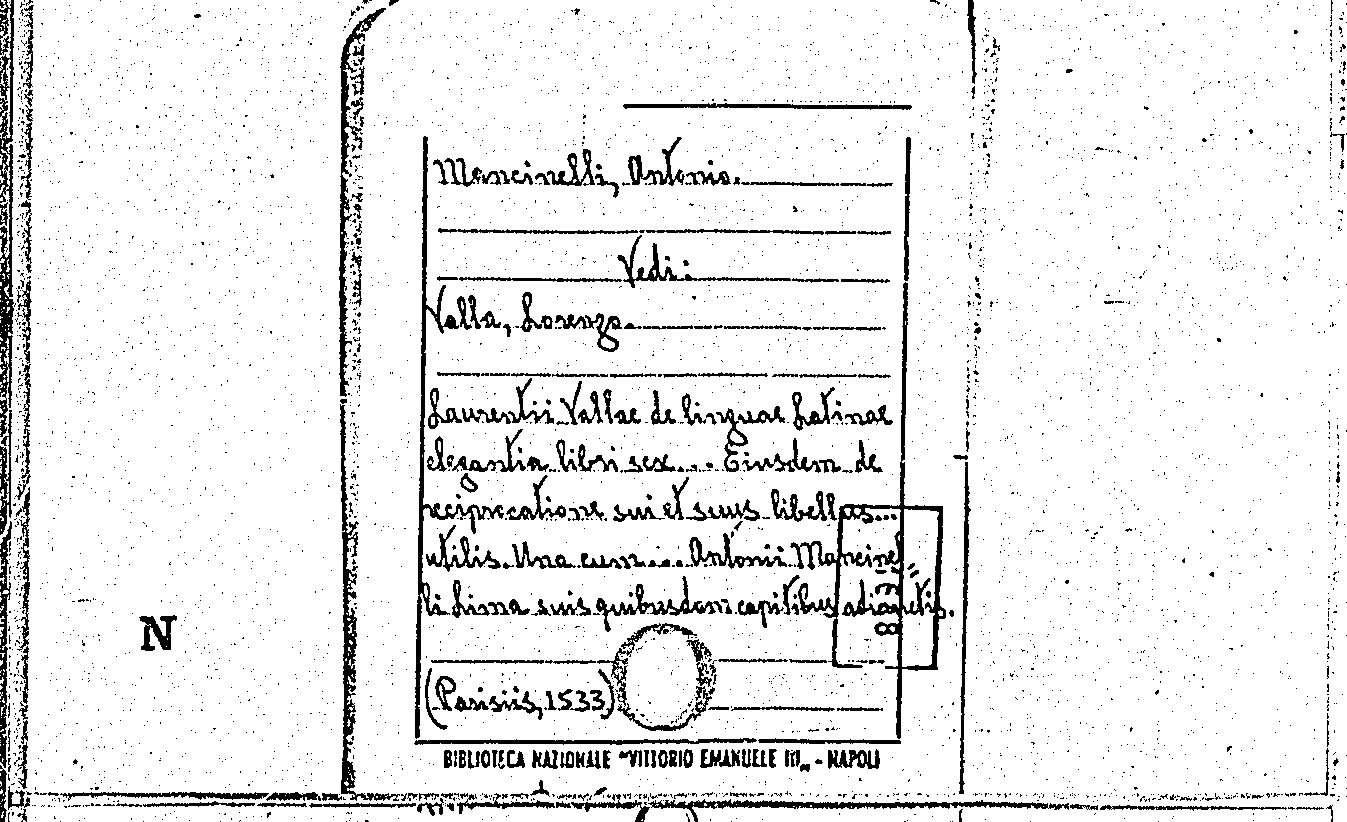 Mancinelli, Antonio.
Vedi:
Valla, Lorenzo.
Laurentii Vallae de linguae Latinae
elegantia libri sex... Eiusdem de
reciprocatione sui et suus libellus...
utilis. Una cum... Antonii Mancinel
li Lima suis quibusdam capitibus adiunctis.
(Parisiis, 1533)
BIBLIOTECA NAZIONALE "VITTORIO EMANUELE III" - NAPOLI
N